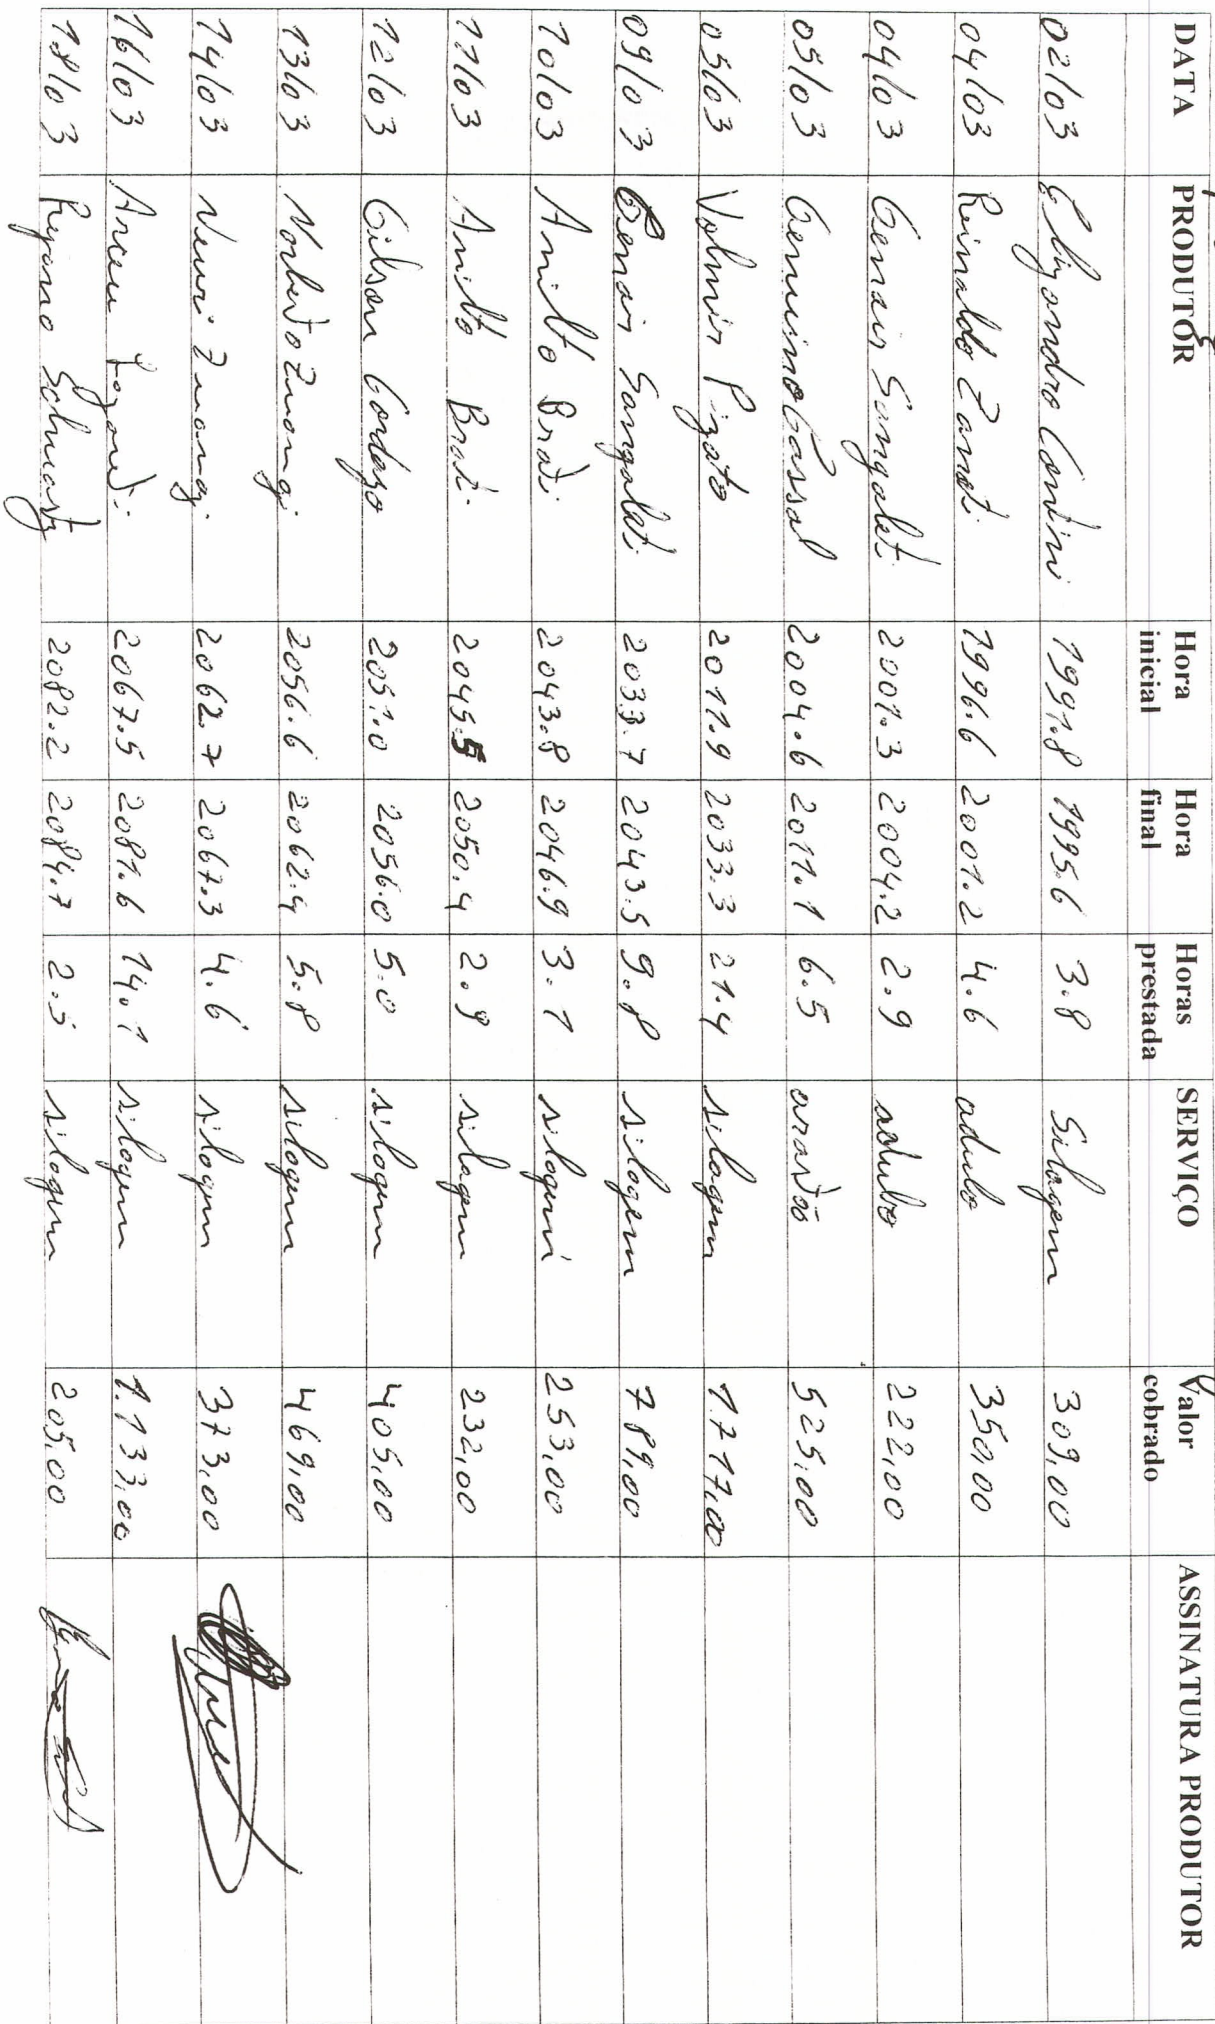 DATA PRODUTOR Hora inicial Hora final Horas prestada SERVIÇO Valor cobrado ASSINATURA PRODUTOR
02/03 Elizandro Contini 1991.8 1995.6 3.8 Silagem 309,00
04/03 Reinaldo Zanoti 1996.6 2001.2 4.6 adubo 350,00
04/03 Genair Sangaleti 2001.3 2004.2 2.9 adubo 222,00
05/03 Genuino Cassal 2004.6 2011.1 6.5 525,00
05/03 Volmir Pizato 2011.9 2033.3 21.4 silagem 1.717,00
09/03 Genair Sangaleti 2033.7 2043.5 9.8 silagem 789,00
10/03 Anilto Brati 2043.8 2046.9 3.1 silagem 253,00
11/03 Anilto Brati 2045.5 2050.4 2.9 silagem 232,00
12/03 Gilson Cordazo 2051.0 2056.0 5.0 silagem 405,00
13/03 Norberto 2056.6 2062.4 5.8 silagem 469,00
14/03 Neuri 2062.7 2067.3 4.6 silagem 373,00
16/03 Arceu 2067.5 2081.6 14.1 silagem 1.133,00
18/03 Rejano Schuartz 2082.2 2084.7 2.5 silagem 205,00